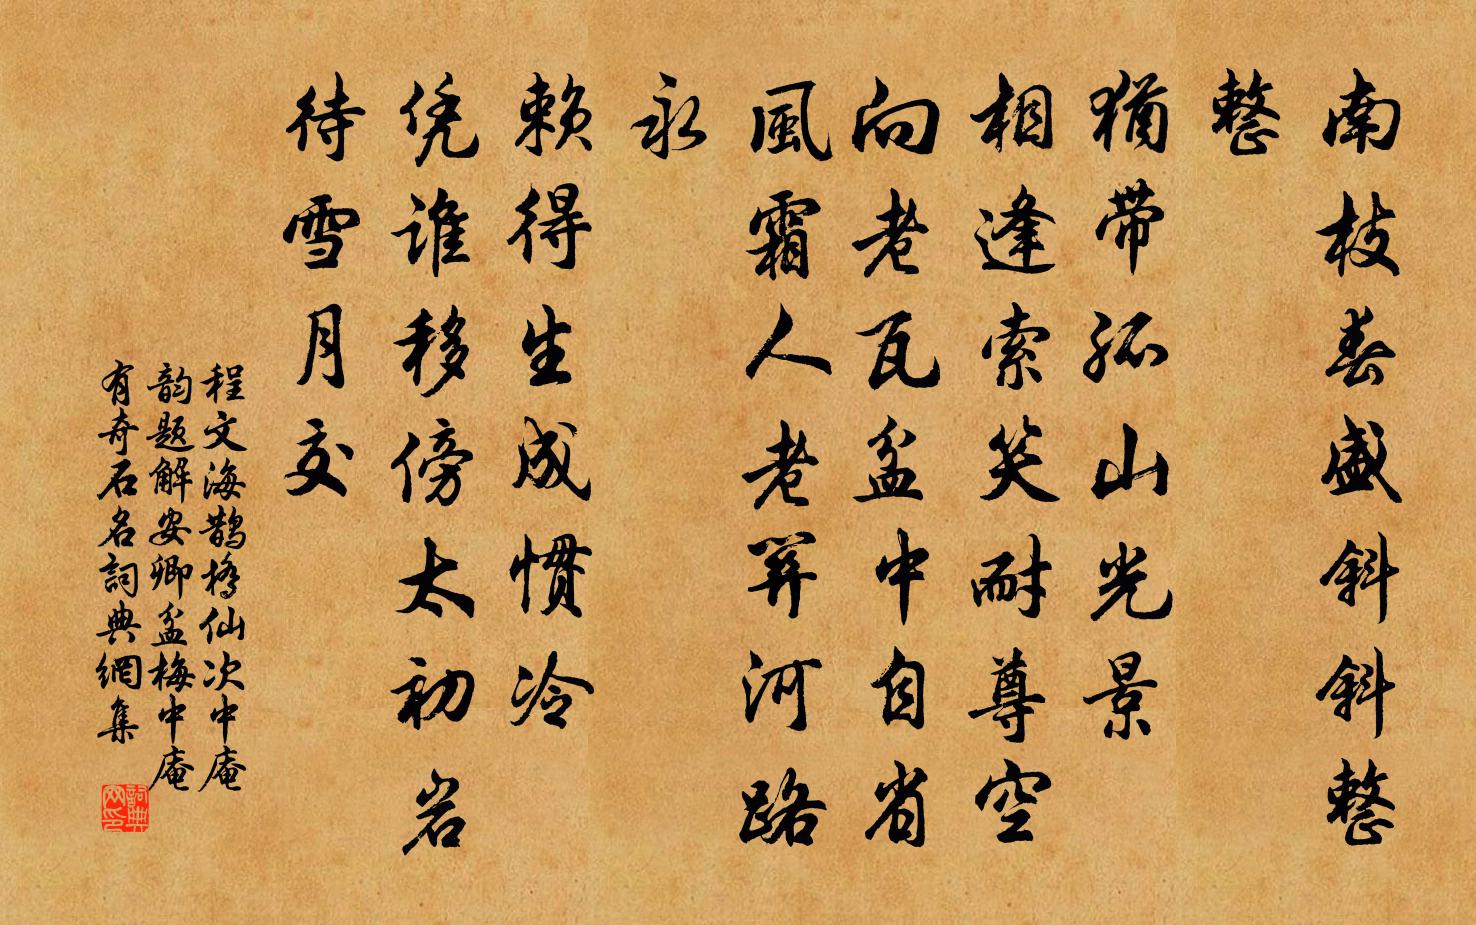 南枝春盛斜斜整
整
猶带孤山光景
相逢索笑耐尊空
向老瓦盆中自省
風霜人老关河路
永
赖得生成惯冷
凭谁移傍太初岩
待雪月交
程文海鹊橋仙次中庵
韵题解安卿盆梅中庵
有奇石名詞典網集
詞典网印